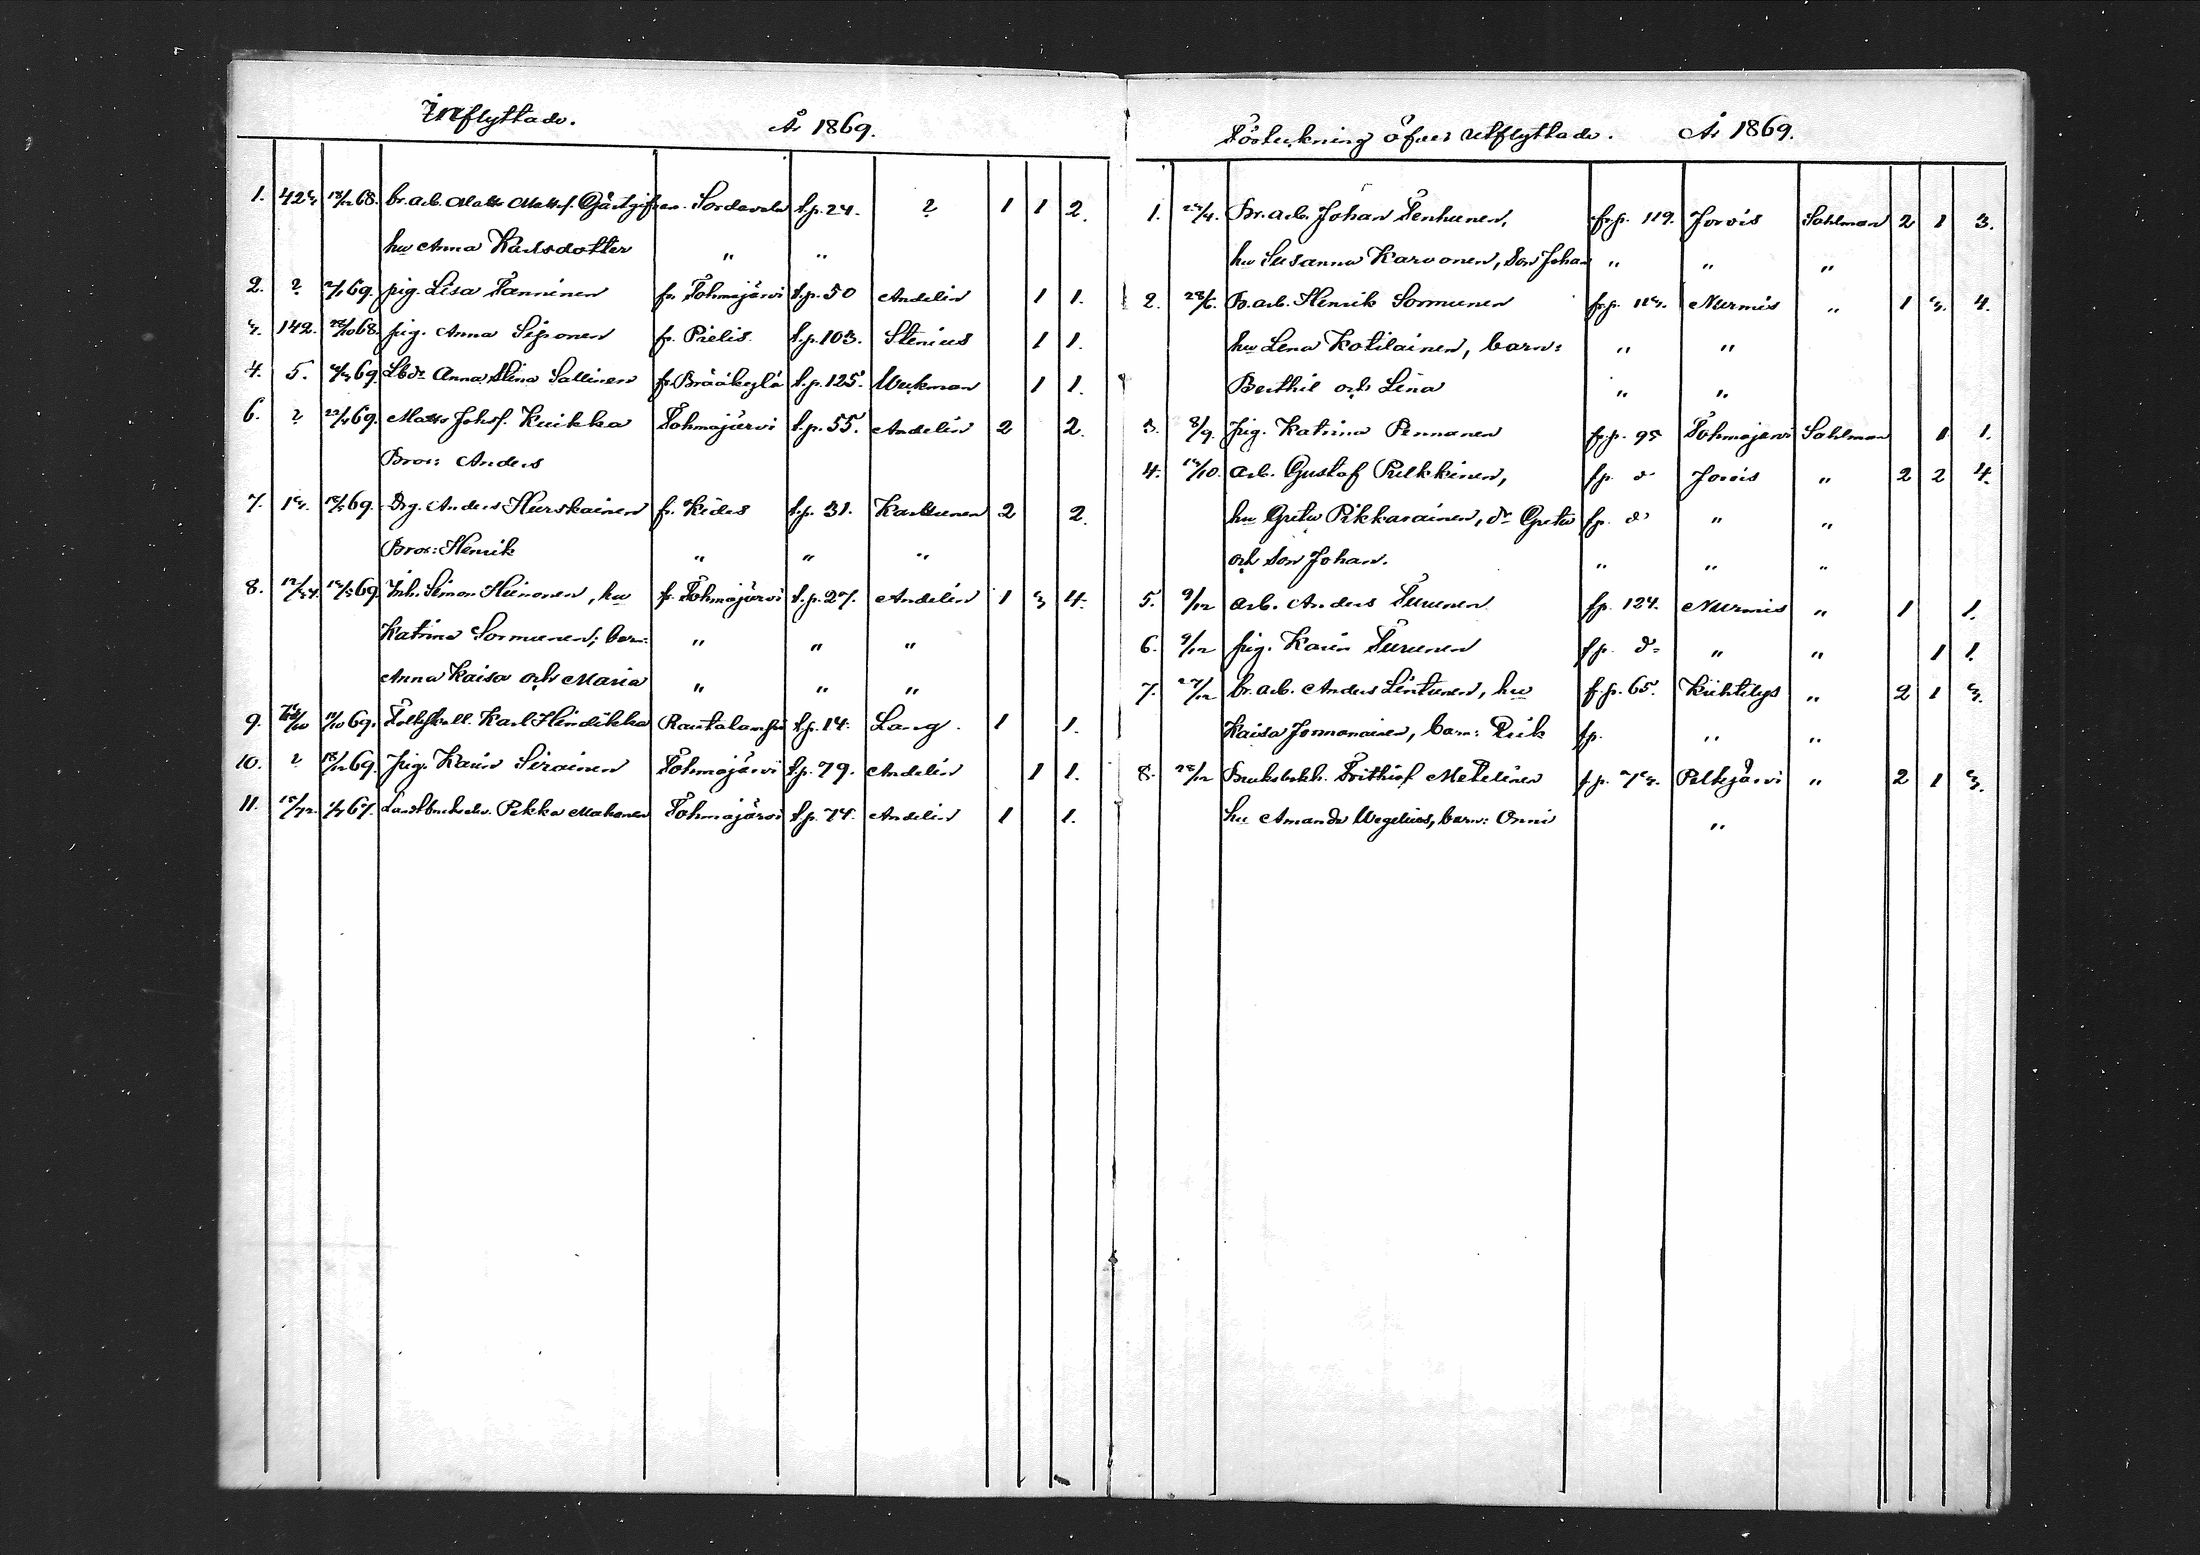 Inflyttade. År 1869.
1. 423 68. br. arb. Matts Matts f. Gästgifvare. Sordavala t.p. 24. ? 1 1 2.
hu Anna Karlsdotter " "
2. ? 69. pig. Lisa Tanninen fr. Tohmajärvi t.p. 50 Andelin 1 1.
3. 142. 28/10 68. pig. Anna Siponen fr. Pielis. t.p. 103. Stenius 1 1.
4. 5. 69. Anna Stina Sallinen fr. Bräkylä t.p. 125. Wukman 1 1.
6. ? 69. Matts Johsf. Kuikka Tohmajärvi t.p. 55. Andelin 2 2.
Bror: Anders
7. 13. 69. Drg. Anders Hurskainen fr. Kides t.p. 31. Karttunen 2 2.
Bror: Henrik " " "
8. 69. Inh. Simon Heinonen, hu fr. Tohmajärvi t.p. 27. Andelin 1 3 4.
Katrina Sormunen; barn: " " "
Anna Kaisa och Maria " " "
9. 69. Karl Hendikka Rautalampi t.p. 14. Lang. 1 1.
10. ? 69. Pig. Karin Sirainen Tohmajärvi t.p. 79. Andelin 1 1.
11. 67. Pekka Mahonen Tohmajärvi t.p. 74. Andelin 1 1.
Förteckning öfver Utflyttade. År 1869.
1. Br. arb. Johan Tenhunen, fr.p. 119. Jorois Sahlman 2 1 3.
hu Susanna Karvonen, Son Johan " " "
2. B. arb. Henrik Sormunen fr.p. 113. Nurmis " 1 3. 4.
hu Lena Kotilainen, barn: " "
Berthil och Lina " "
3. 8/9. Pig. Katrina Pennanen fr.p. 95 Tohmajärvi Sahlman 1 1.
4. arb. Gustaf Pulkkinen, fp. d Jorois " 2 2 4.
hu Greta Pikkarainen, dr Greta fp. d " "
och Son Johan. " " "
5. 9/12 arb. Anders Turunen fp. 124. Nurmis " 1 1.
6. 9/12 pig. Karin Turunen fp. d " " 1 1.
7. 27/12 br. arb. Anders Lintunen, hu f.p. 65. Kiihtilys " 2 1 3.
Kaisa Jormanainen, barn: Erik fp. " "
8. 28/12 Bruksbokh. Frithiof Metelinen f.p. 73. Pelkjärvi " 2 1 3.
hu Amanda Wegelius, barn: Onni "